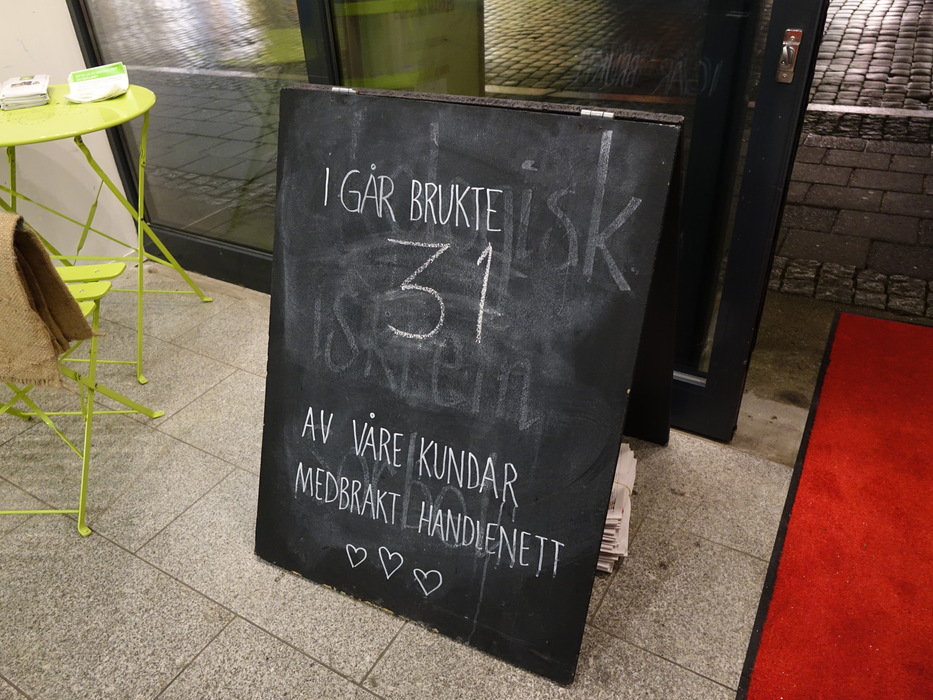 I GÅR BRUKTE
31
AV VÅRE KUNDAR
MEDBRAKT HANDLENETT